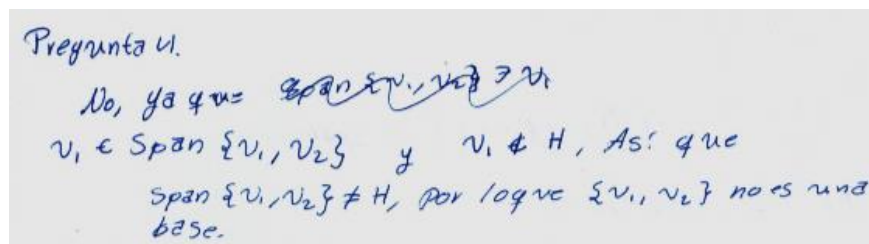 Pregunta 4.
No, ya que Span {v₁, v₂} ∋ v₁
v₁ ∈ Span {v₁, v₂} y v₁ ∉ H, Así que
Span {v₁, v₂} ≠ H, por loque {v₁, v₂} no es una
base.